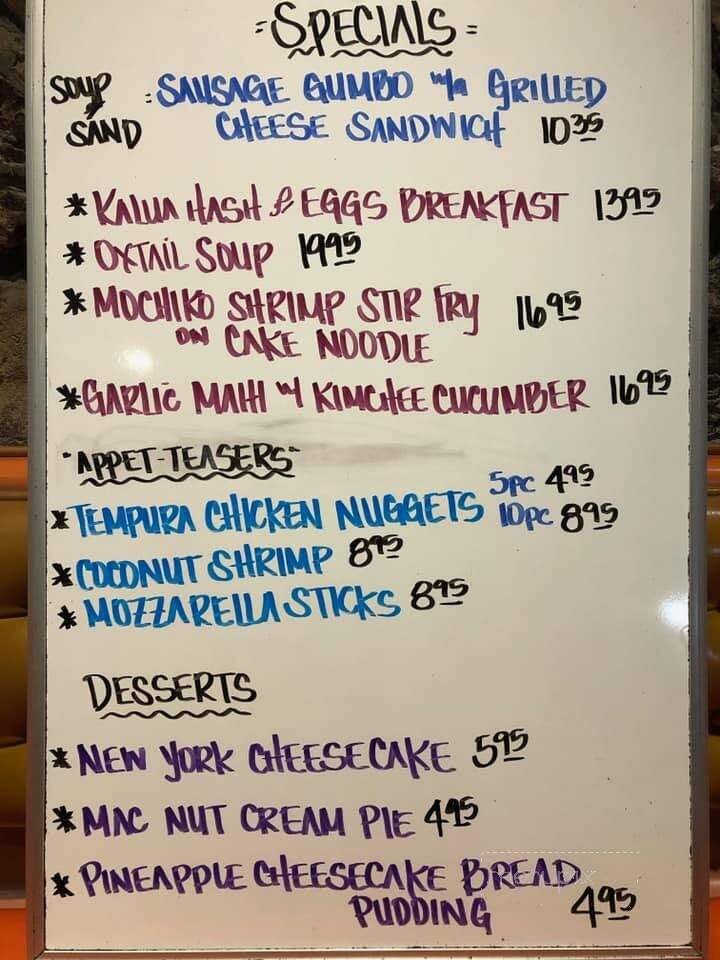 =SPECIALS=
SOUP : SAUSAGE GUMBO W/A GRILLED
SAND CHEESE SANDWICH 10 35
* KALUA HASH & EGGS BREAKFAST 13 95
* OXTAIL SOUP 19 95
* MOCHIKO SHRIMP STIR FRY 16 95
ON CAKE NOODLE
* GARLIC MAHI W/ KIMCHEE CUCUMBER 16 95
"APPET-TEASERS"
5PC 4 95
* TEMPURA CHICKEN NUGGETS 10PC 8 95
* COCONUT SHRIMP 8 95
* MOZZARELLA STICKS 8 95
DESSERTS
* NEW YORK CHEESECAKE 5 95
* MAC NUT CREAM PIE 4 95
* PINEAPPLE CHEESECAKE BREAD
PUDDING 4 95